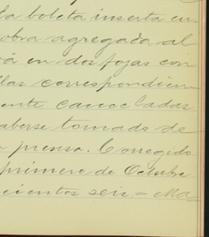 la boleta inserta en
obra agregada al
rá en dos fojas con
las correspondien
ente canceladas
aberse tomado de
a prensa. Corregido
primero de Octubre
cientos seis = Ma